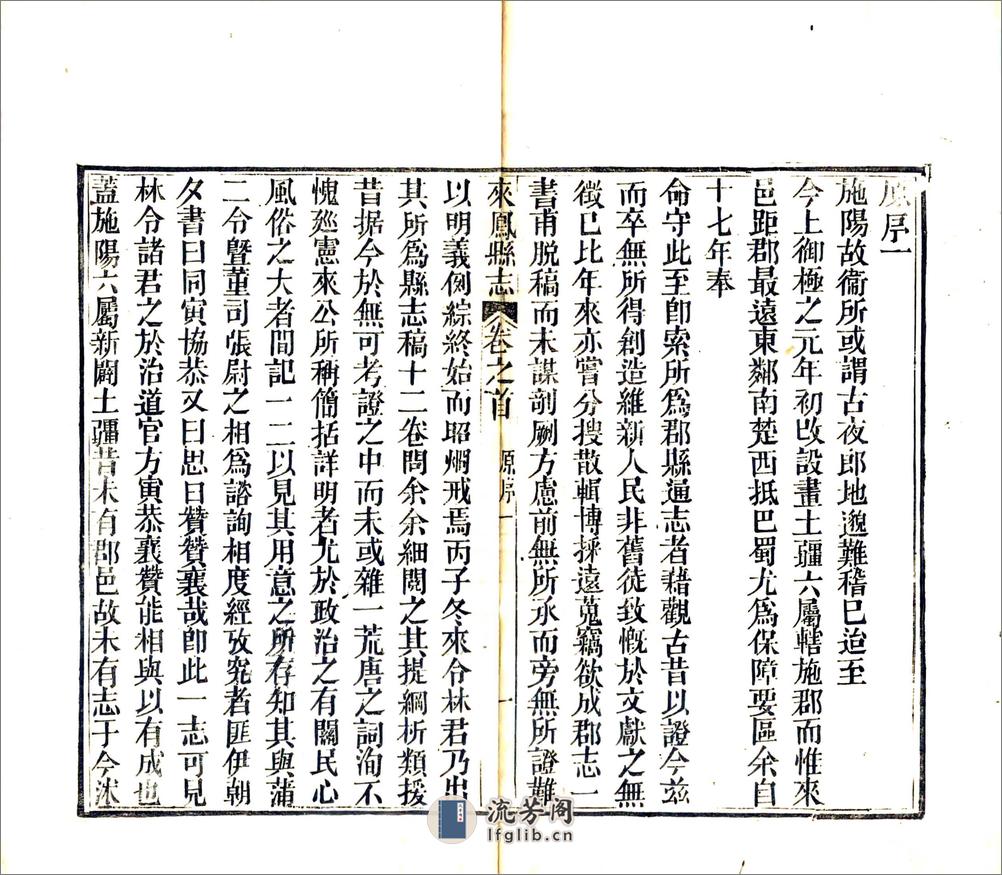 原序一
施陽故衞所或謂古夜郎地邈難稽巳迨至
今上御極之元年初改設畫土疆六屬轄施郡而惟來
邑距郡最遠東鄰南楚西抵巴蜀尤爲保障要區余自
十七年奉
命守此至卽索所爲郡縣通志者藉觀古昔以證今茲
而卒無所得創造維新人民非舊徒致慨於文獻之無
徵已比年來亦嘗分搜散輯博採遠蒐竊欲成郡志一
書甫脫稿而未謀剞劂方慮前無所承而旁無所證難
來鳳縣志 卷之首 原序一 一
以明義例綜終始而昭烱戒焉丙子冬來令林君乃出
其所爲縣志稿十二卷問余余細閱之其提綱析類援
昔据今於無可考證之中而未或雜一荒唐之詞洵不
愧廵憲來公所稱簡括詳明者尤於政治之有關民心
風俗之大者間記一二以見其用意之所存知其與蒲
二令曁董司張尉之相爲諮詢相度經攷究者匪伊朝
夕書曰同寅協恭又曰思曰贊贊襄哉卽此一志可見
林令諸君之於治道官方寅恭襄贊能相與以有成也
蓋施陽六屬新闢土疆昔未有郡邑故未有志于今沭
流芳阁
lfglib.cn